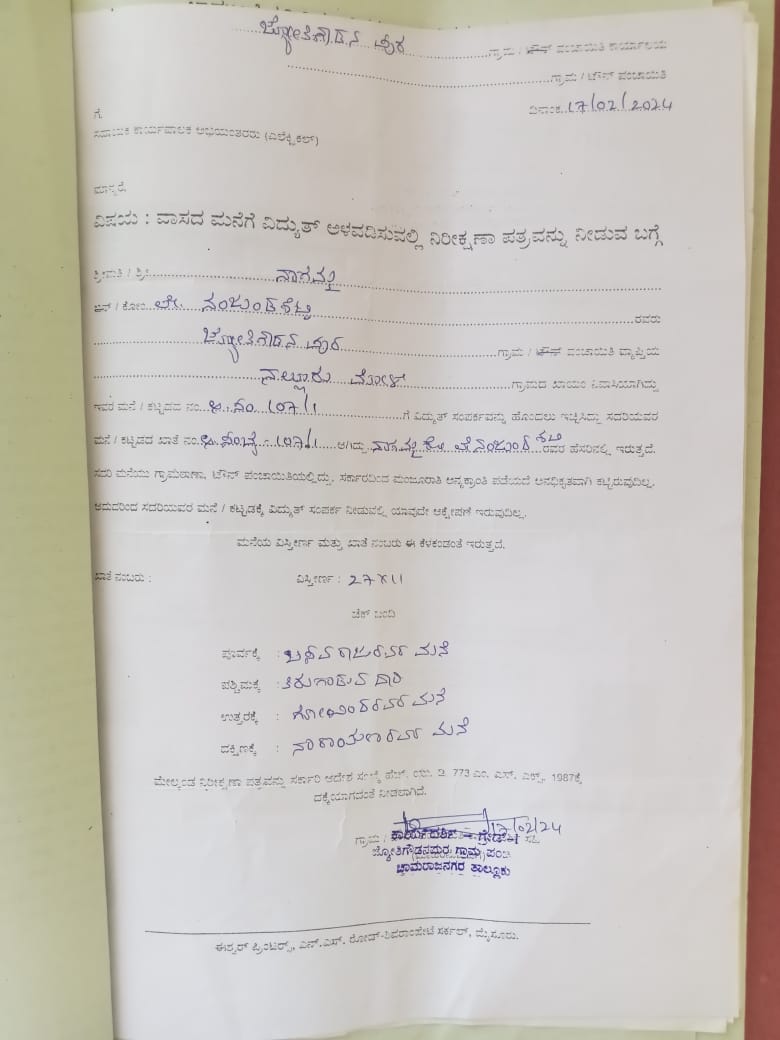 ಜ್ಯೋತಿಗೌಡನ ಪುರ ಗ್ರಾಮ / ಟೌನ್ ಪಂಚಾಯಿತಿ ಕಾರ್ಯಾಲಯ
ಗ್ರಾಮ / ಟೌನ್ ಪಂಚಾಯಿತಿ
ದಿನಾಂಕ 17/02/2024
ಗೆ,
ಸಹಾಯಕ ಕಾರ್ಯಪಾಲಕ ಅಭಿಯಂತರರು (ಎಲೆಕ್ಟ್ರಿಕಲ್)
ಮಾನ್ಯರೆ,
ವಿಷಯ : ವಾಸದ ಮನೆಗೆ ವಿದ್ಯುತ್ ಅಳವಡಿಸುವಲ್ಲಿ ನಿರೀಕ್ಷಣಾ ಪತ್ರವನ್ನು ನೀಡುವ ಬಗ್ಗೆ
ಶ್ರೀಮತಿ / ಶ್ರೀ ನಾಗಮ್ಮ
ಬಿನ್ / ಕೋಂ ಲೇ. ನಂಜುಂಡಶೆಟ್ಟಿ ರವರು
ಜ್ಯೋತಿಗೌಡನ ಪುರ ಗ್ರಾಮ / ಟೌನ್ ಪಂಚಾಯಿತಿ ವ್ಯಾಪ್ತಿಯ
ನಲ್ಲೂರು ಮೋಳೆ ಗ್ರಾಮದ ಖಾಯಂ ನಿವಾಸಿಯಾಗಿದ್ದು
ಇವರ ಮನೆ / ಕಟ್ಟಡದ ನಂ. 107/1 ಗೆ ವಿದ್ಯುತ್ ಸಂಪರ್ಕವನ್ನು ಹೊಂದಲು ಇಚ್ಛಿಸಿದ್ದು ಸದರಿಯವರ
ಮನೆ / ಕಟ್ಟಡದ ಖಾತೆ ನಂ. 107/1 ಆಗಿದ್ದು ನಾಗಮ್ಮ ಕೋಂ ಲೇ ನಂಜುಂಡಶೆಟ್ಟಿ ರವರ ಹೆಸರಿನಲ್ಲಿ ಇರುತ್ತದೆ.
ಸದರಿ ಮನೆಯು ಗ್ರಾಮಠಾಣಾ, ಟೌನ್ ಪಂಚಾಯಿತಿಯಲ್ಲಿದ್ದು, ಸರ್ಕಾರದಿಂದ ಮಂಜೂರಾತಿ ಅನ್ಯಕ್ರಾಂತಿ ಪಡೆಯದೆ ಅನಧಿಕೃತವಾಗಿ ಕಟ್ಟಿರುವುದಿಲ್ಲ.
ಆದುದರಿಂದ ಸದರಿಯವರ ಮನೆ / ಕಟ್ಟಡಕ್ಕೆ ವಿದ್ಯುತ್ ಸಂಪರ್ಕ ನೀಡುವಲ್ಲಿ ಯಾವುದೇ ಆಕ್ಷೇಪಣೆ ಇರುವುದಿಲ್ಲ.
ಮನೆಯ ವಿಸ್ತೀರ್ಣ ಮತ್ತು ಖಾತೆ ನಂಬರು ಈ ಕೆಳಕಂಡಂತೆ ಇರುತ್ತದೆ.
ಖಾತೆ ನಂಬರು : ವಿಸ್ತೀರ್ಣ : 27X11
ಚೆಕ್ ಬಂದಿ
ಪೂರ್ವಕ್ಕೆ : ಬಸವರಾಜುರವರ ಮನೆ
ಪಶ್ಚಿಮಕ್ಕೆ : ತಿರುಗಾಡುವ ದಾರಿ
ಉತ್ತರಕ್ಕೆ : ಗೋವಿಂದರವರ ಮನೆ
ದಕ್ಷಿಣಕ್ಕೆ : ನಾರಾಯಣರವರ ಮನೆ
ಮೇಲ್ಕಂಡ ನಿರೀಕ್ಷಣಾ ಪತ್ರವನ್ನು ಸರ್ಕಾರಿ ಆದೇಶ ಸಂಖ್ಯೆ ಹೆಚ್. ಯು. ಡಿ. 773 ಎಂ. ಎನ್. ಎಕ್ಸ್. 1987ಕ್ಕೆ
ದಕ್ಕೆಯಾಗದಂತೆ ನೀಡಲಾಗಿದೆ.
17/02/24
ಗ್ರಾಮ / ಸಹಿ
ಕಾರ್ಯದರ್ಶಿ ಗ್ರೇಡ್-I
ಜ್ಯೋತಿಗೌಡನಪುರ ಗ್ರಾಮ ಪಂಚಿ
ಚಾಮರಾಜನಗರ ತಾಲ್ಲೂಕು
ಈಶ್ವರ್ ಪ್ರಿಂಟರ್ಸ್, ಎನ್.ಎಸ್. ರೋಡ್-ಶಿವರಾಂಪೇಟೆ ಸರ್ಕಲ್, ಮೈಸೂರು.